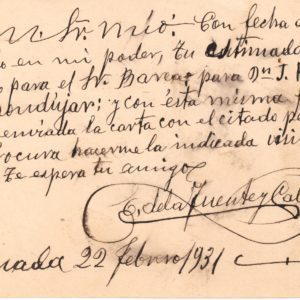 Sr. Mío: Con fecha
en mi poder, tu estimada
para el Sr. Barea para Dn J.
Andujar; y con ésta misma
enviada la carta con el citado
Procura hacerme la indicada
Te espera tu amigo
E. de la Fuente y
nada 22 Febrero 1931